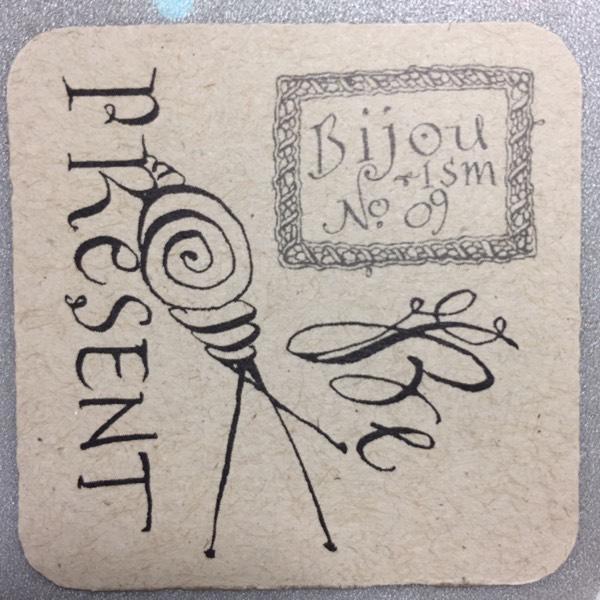 Bijou
~ism
No. 09
Be
PReSENT